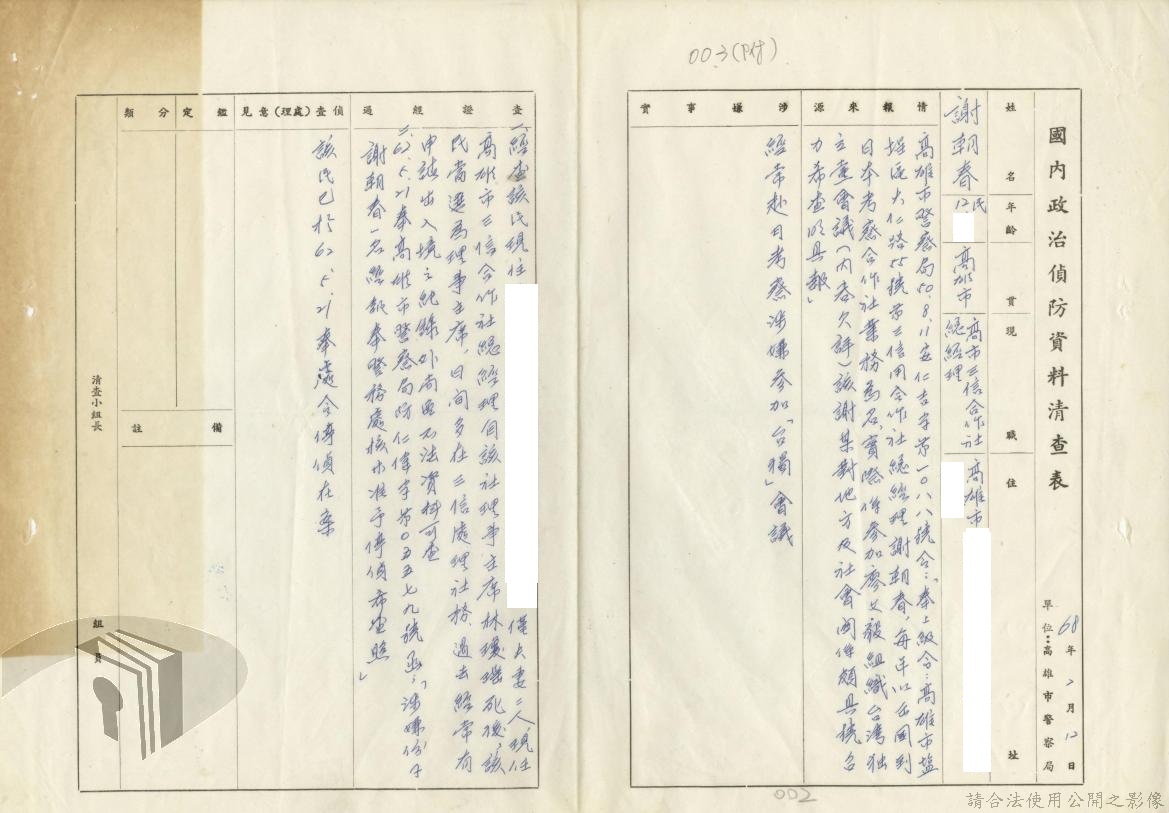 003(附)
國內政治偵防資料清查表
單位：高雄市警察局
68年2月12日
姓名
年齡
貫
現職
住址
謝朝春
民12
高雄市
高市三信合作社
總經理
高雄市
情報來源
高雄市警察局50.8.11安仁吉字第一〇八八號令：「奉上級令：高雄市鹽
埕區大仁路55號第三信用合作社總經理謝朝春，每年以出國到
日本考察合作社業務為名，實際係參加廖文毅組織台灣獨
立黨會議（內容欠詳）該謝某對地方及社會關係頗具號召
力希查明具報」
涉嫌事實
經常赴日考察涉嫌參加「台獨」會議
查證經過
一、經查該民現住
僅夫妻二人，現任
高雄市三信合作社總經理自該社理事主席林瓊瑤死後，該
民當選為理事主席，日間多在三信處理社務，過去經常有
申請出入境之紀錄外尚無不法資料可查
二、62.5.21奉高雄市警察局防仁偉字第0五五七九號函：「涉嫌份子
謝朝春一名經報奉警務處核示准予停偵希查照」
偵查(處理)意見
該民已於62.5.21奉處令停偵在案
鑑定分類
備註
清查小組長
組員
002
請合法使用公開之影像